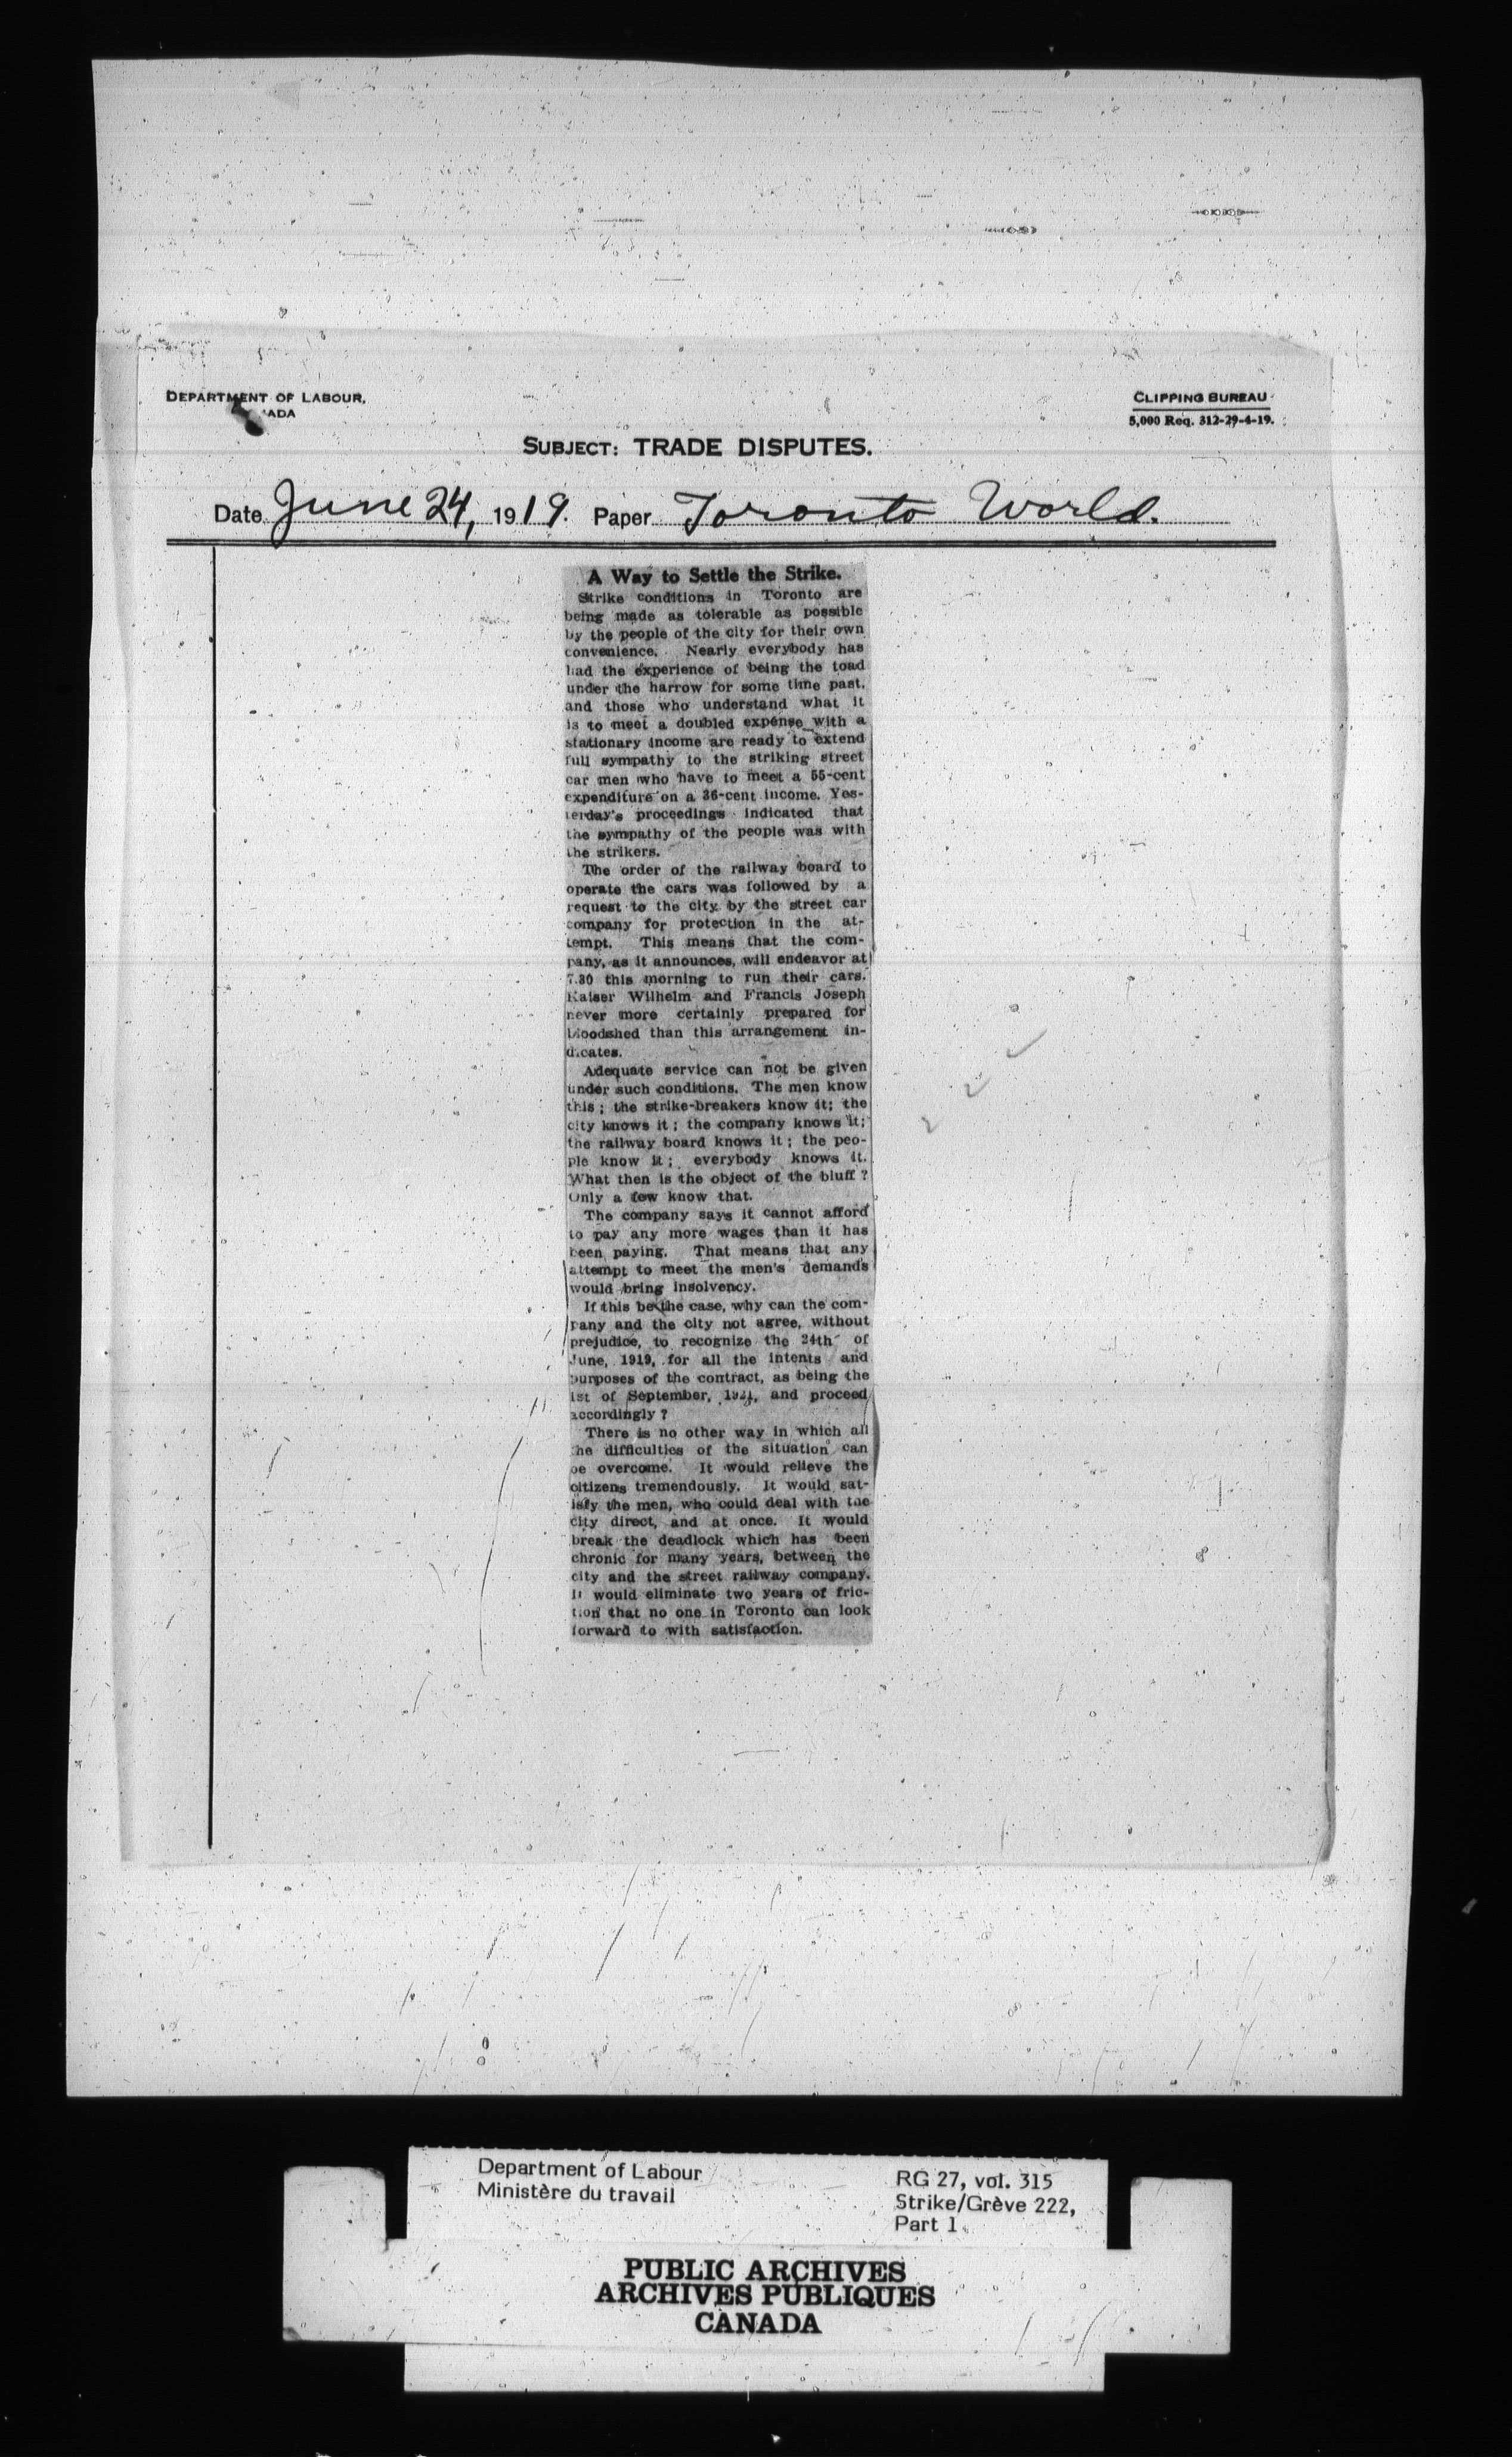 DEPARTMENT OF LABOUR,
CLIPPING BUREAU
5,000 Req. 312-29-4-19.
SUBJECT: TRADE DISPUTES.
Date June 24, 1919. Paper Toronto World.
A Way to Settle the Strike.
Strike conditions in Toronto are
being made as tolerable as possible
by the people of the city for their own
convenience. Nearly everybody has
had the experience of being the toad
under the harrow for some time past,
and those who understand what it
is to meet a doubled expense with a
stationary income are ready to extend
full sympathy to the striking street
car men who have to meet a 55-cent
expenditure on a 36-cent income. Yes-
terday's proceedings indicated that
the sympathy of the people was with
the strikers.
The order of the railway board to
operate the cars was followed by a
request to the city by the street car
company for protection in the at-
tempt. This means that the com-
pany, as it announces, will endeavor at
7.30 this morning to run their cars.
Kaiser Wilhelm and Francis Joseph
never more certainly prepared for
bloodshed than this arrangement in-
dicates.
Adequate service can not be given
under such conditions. The men know
this; the strike-breakers know it; the
city knows it; the company knows it;
the railway board knows it; the peo-
ple know it; everybody knows it.
What then is the object of the bluff?
Only a few know that.
The company says it cannot afford
to pay any more wages than it has
been paying. That means that any
attempt to meet the men's demands
would bring insolvency.
If this be the case, why can the com-
pany and the city not agree, without
prejudice, to recognize the 24th of
June, 1919, for all the intents and
purposes of the contract, as being the
1st of September, 1921, and proceed
accordingly?
There is no other way in which all
the difficulties of the situation can
be overcome. It would relieve the
citizens tremendously. It would sat-
isfy the men, who could deal with the
city direct, and at once. It would
break the deadlock which has been
chronic for many years, between the
city and the street railway company.
It would eliminate two years of fric-
tion that no one in Toronto can look
forward to with satisfaction.
Department of Labour
Ministère du travail
RG 27, vol. 315
Strike/Grève 222,
Part 1
PUBLIC ARCHIVES
ARCHIVES PUBLIQUES
CANADA